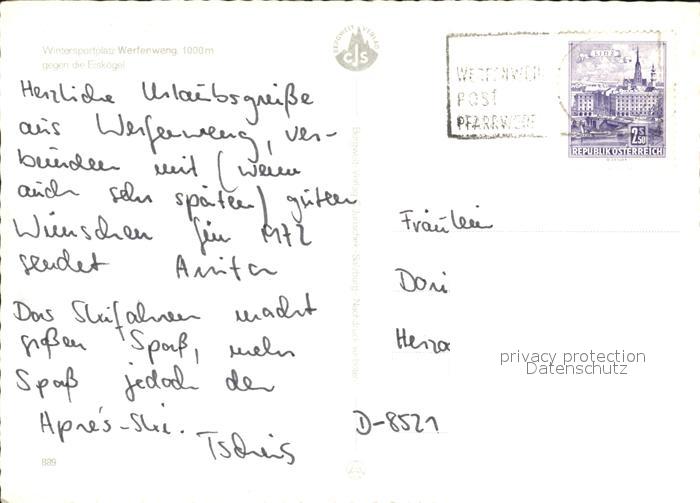 Wintersportplatz Werfenweng, 1000m
gegen die Eiskögel
BERGWELT VERLAG
CJS
Herzliche Urlaubsgrüße
aus Werfenweng, ver-
bunden mit (wenn
auch sehr späten) guten
Wünschen für 1972
sendet Anita
Das Skifahren macht
großen Spaß, mehr
Spaß jedoch der
Aprés-Ski.
Tschüs
889
WERFENWENG
POST
PFARRWERFEN
LINZ
2.50
S
REPUBLIK ÖSTERREICH
Fräulein
Dori
D-8521
privacy protection
Datenschutz